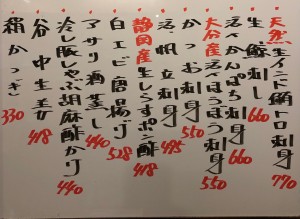 天然生インド鮪トロ刺身 770
生鯨刺し 660
活〆かんぱち刺身 660
大分産活〆ほうぼう刺身 550
かつお刺身 550
活帆立刺身 495
静岡産生しらすポン酢 418
白エビ唐揚げ 528
アサリ酒蒸し 440
冷し豚しゃぶ胡麻酢がけ 440
谷中生姜 418
絹かつぎ 330